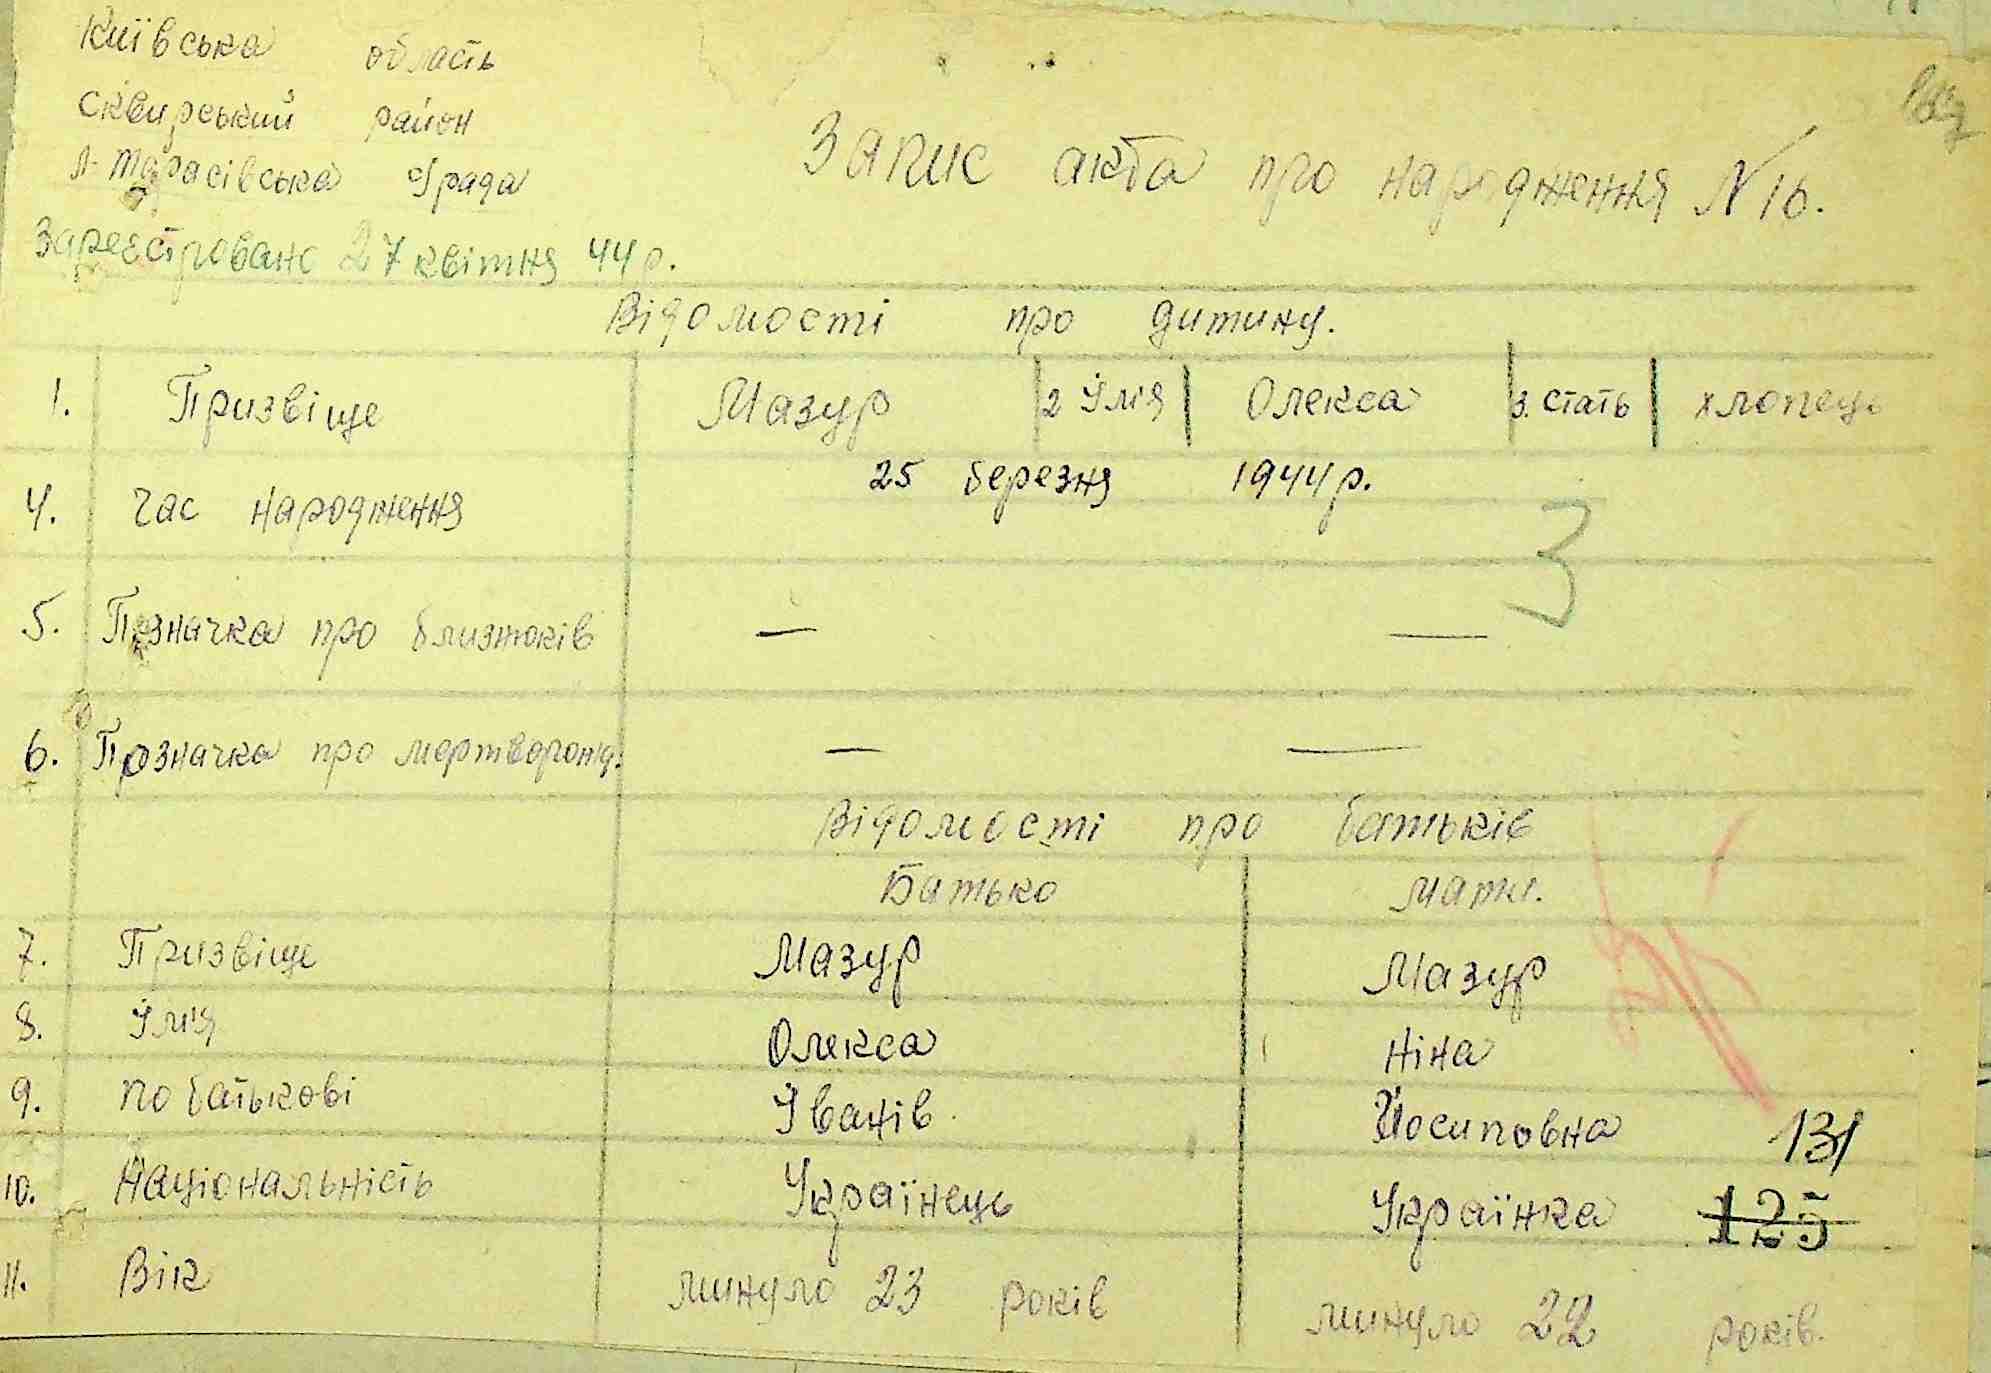 Київська область
Сквирський район
Л-Тарасівська с/рада
Зареєстровано 27 квітня 44 р.
Запис акта про народження N 16.
Відомості про дитину.
1. Призвіще Мазур 2 Імя Олекса 3. стать хлопець
4. Час народження 25 березня 1944 р.
3
5. Позначка про близнюків — —
6. Позначка про мертворожд. — —
Відомості про батьків
Батько мати.
7. Призвіще Мазур Мазур
8. Ім'я Олекса Ніна
9. по батькові Іванів Йосиповна
131
10. Національність Українець Українка
125
11. Вік минуло 23 років минуло 22 років.